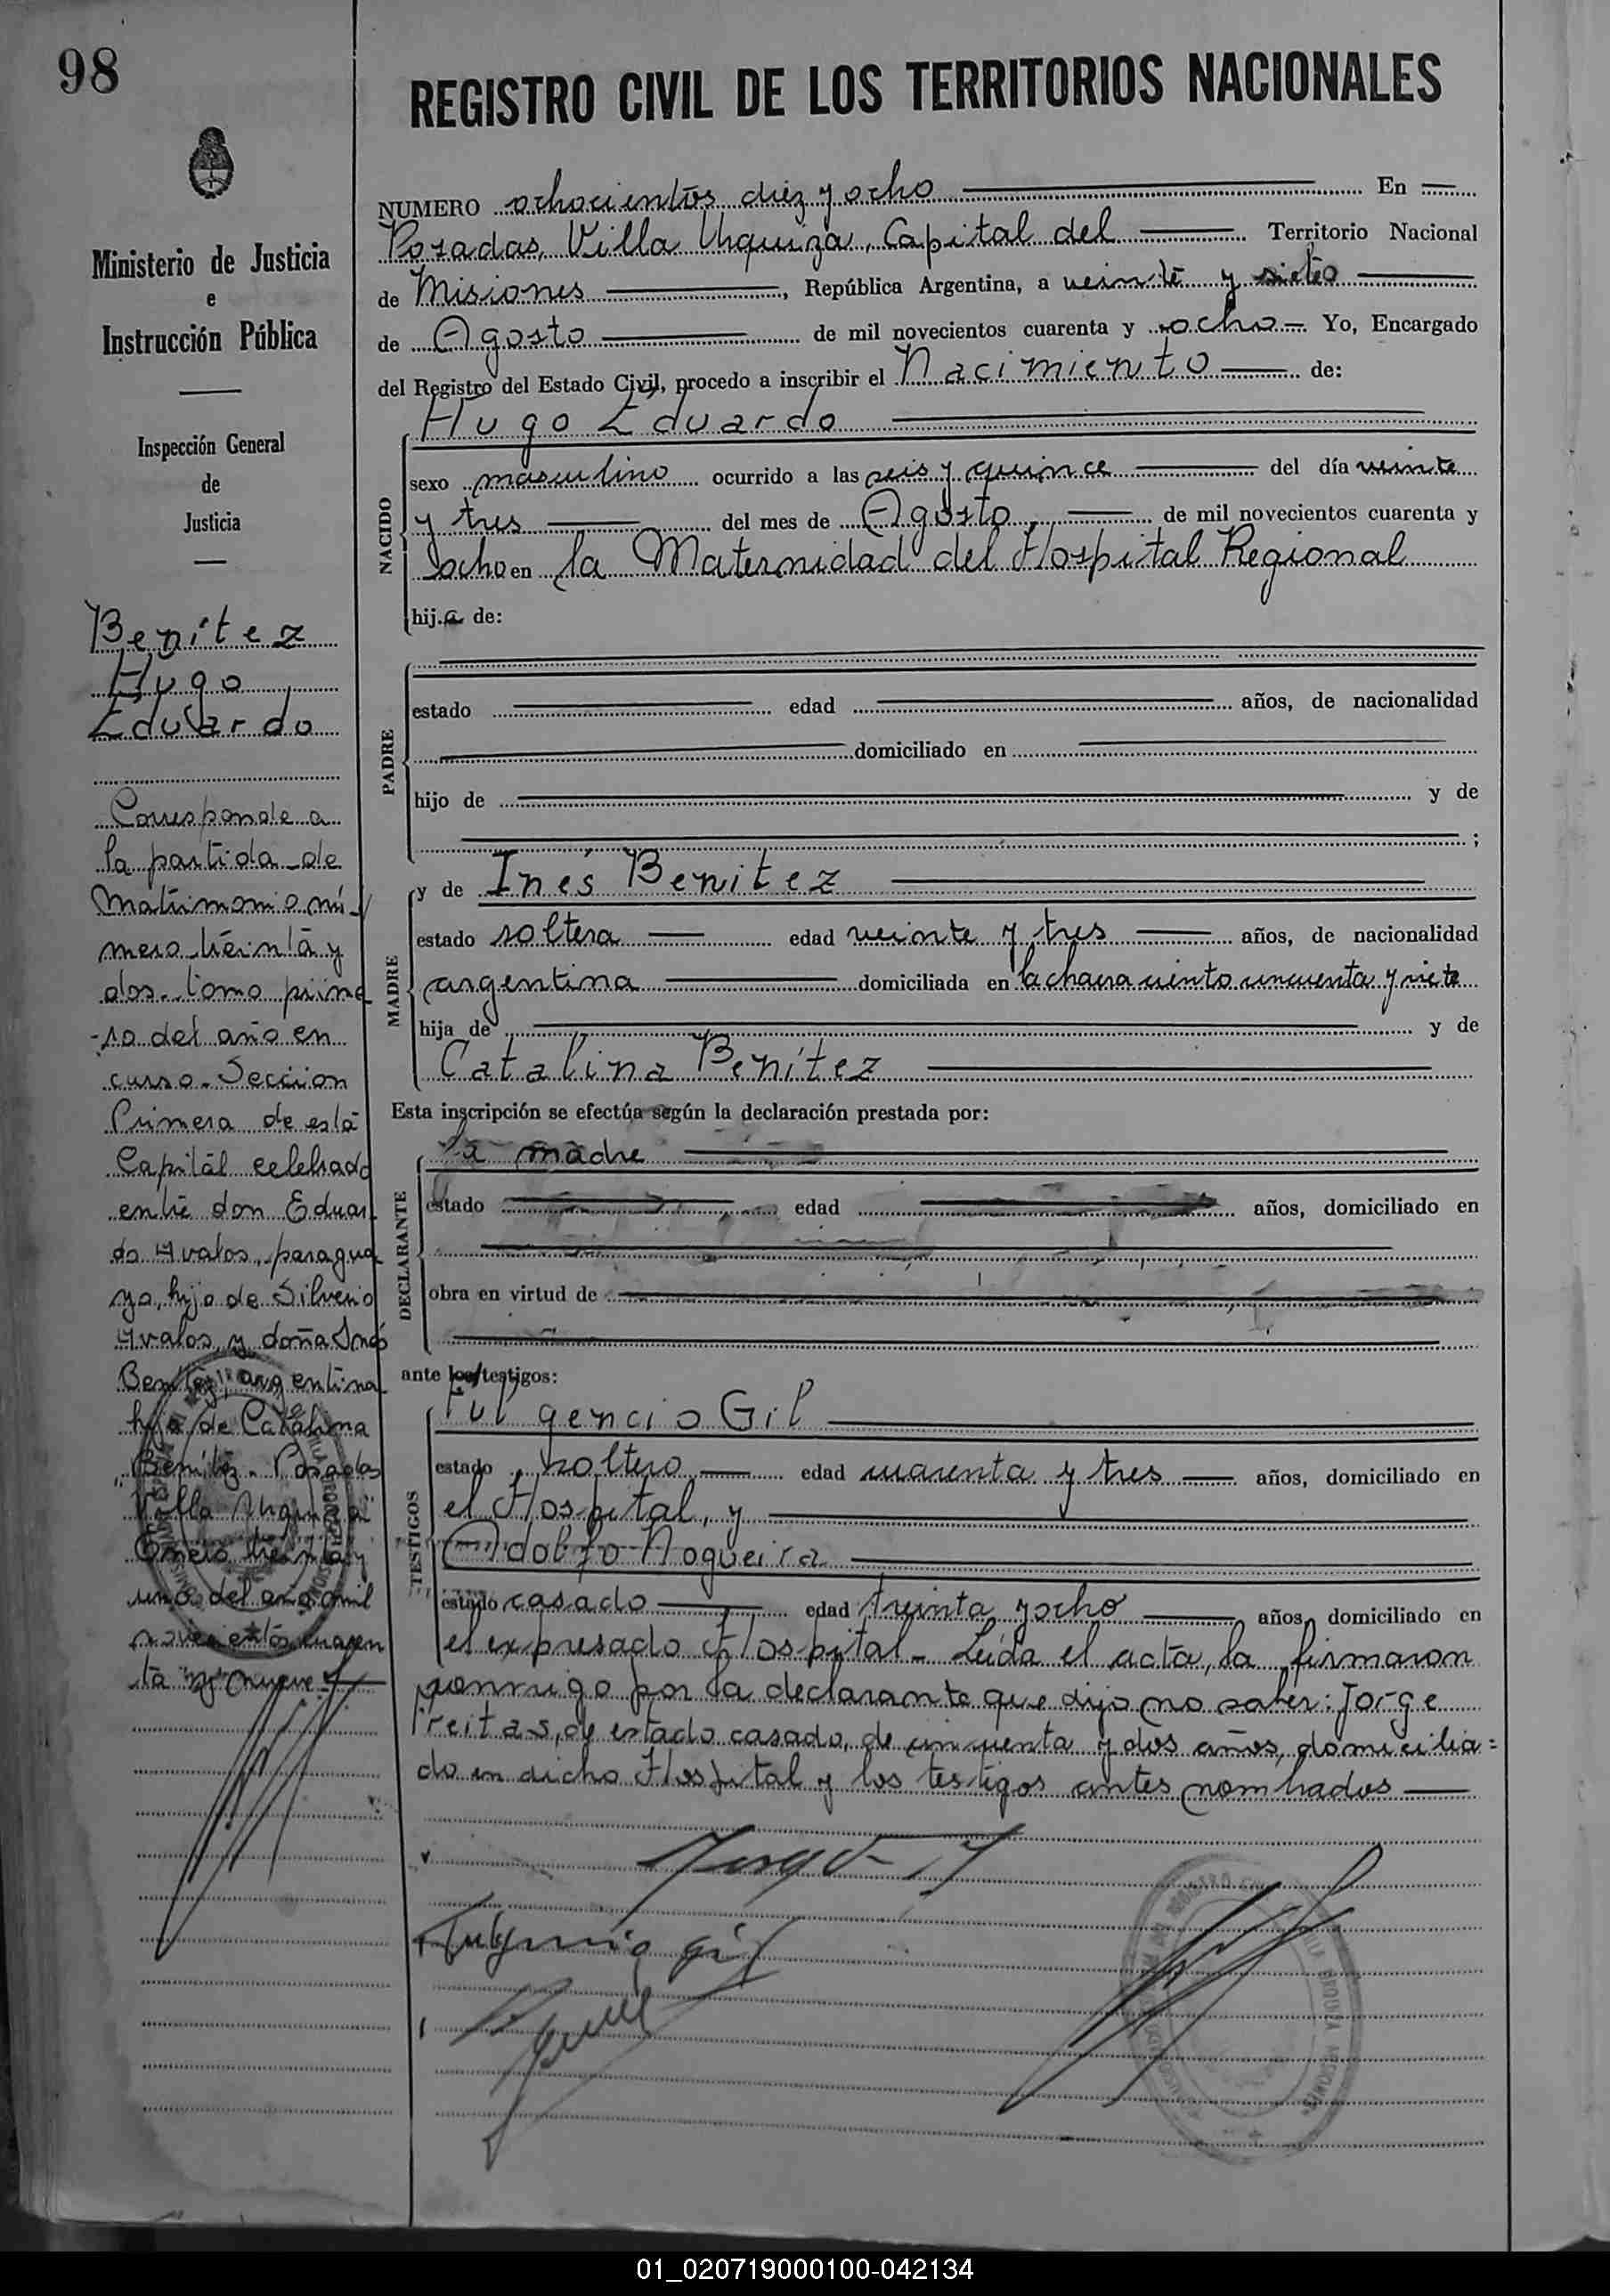 98
REGISTRO CIVIL DE LOS TERRITORIOS NACIONALES
Ministerio de Justicia
e
Instrucción Pública
Inspección General
de
Justicia
Benítez
Hugo
Eduardo
Corresponde a
la partida de
Matrimonio nú-
mero treinta y
dos. Tomo prime
-ro del año en
curso. Sección
Primera de esta
Capital celebrado
entre don Eduar-
do Avalos, paragua
yo, hijo de Silverio
Avalos y doña Inés
Benítez, argentina
hija de Catalina
Benítez. Posadas
"Villa Urquiza"
Enero treinta y
uno del año mil
novecientos cuaren
ta y nueve
NUMERO ochocientos diez y ocho En
Posadas, Villa Urquiza, Capital del Territorio Nacional
de Misiones, República Argentina, a veinte y siete
de Agosto de mil novecientos cuarenta y ocho. Yo, Encargado
del Registro del Estado Civil, procedo a inscribir el Nacimiento de:
Hugo Eduardo
NACIDO
sexo masculino ocurrido a las seis y quince del día veinte
y tres del mes de Agosto, de mil novecientos cuarenta y
ocho en la Maternidad del Hospital Regional
hij.o de:
PADRE
estado edad años, de nacionalidad
domiciliado en
hijo de y de
;
MADRE
y de Inés Benitez
estado soltera edad veinte y tres años, de nacionalidad
argentina domiciliada en la chacra ciento cincuenta y siete
hija de y de
Catalina Benítez
Esta inscripción se efectúa según la declaración prestada por:
DECLARANTE
la madre
estado edad años, domiciliado en
obra en virtud de
ante los testigos:
TESTIGOS
Fulgencio Gil
estado soltero edad cuarenta y tres años, domiciliado en
el Hospital, y
Adolfo Nogueira
estado casado edad treinta y ocho años, domiciliado en
el expresado Hospital. Leída el acta, la firmaron
conmigo por la declarante que dijo no saber: Jorge
Freitas, de estado casado, de cincuenta y dos años, domicilia=
do en dicho Hospital y los testigos antes nombrados
Fulgencio Gil
01_020719000100-042134